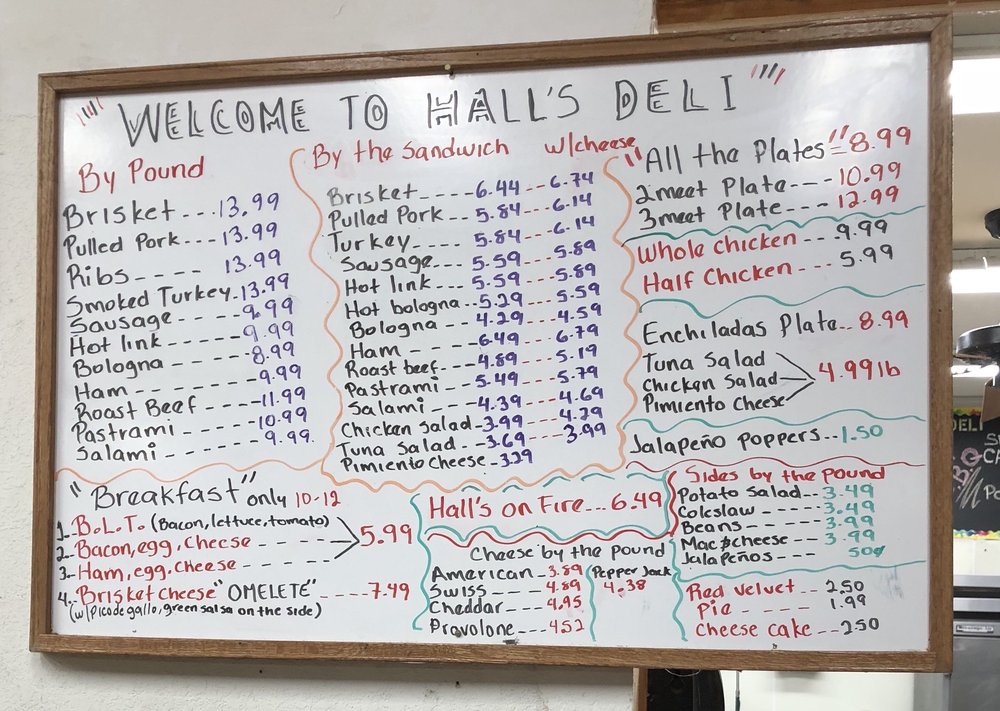 "WELCOME TO HALL'S DELI"
By Pound
Brisket---13.99
Pulled Pork---13.99
Ribs---- 13.99
Smoked Turkey-13.99
Sausage----9.99
Hot link-----9.99
Bologna ----8.99
Ham-------9.99
Roast Beef----11.99
Pastrami-----10.99
Salami-----9.99.
By the Sandwich w/cheese
Brisket----6.44--6.74
Pulled Pork--5.84---6.14
Turkey----5.84---6.14
Sausage---5.59---5.89
Hot link---5.59---5.89
Hot bologna--5.29---5.59
Bologna---4.29---4.59
Ham----6.49---6.79
Roast beef---4.89---5.19
Pastrami---5.49---5.79
Salami---4.39---4.69
Chicken Salad-3.99---4.29
Tuna Salad--3.69---3.99
Pimiento Cheese-3.29
"All the Plates="8.99
2meet Plate---10.99
3meet Plate---12.99
Whole chicken --9.99
Half Chicken---5.99
Enchiladas Plate..8.99
Tuna Salad
Chicken Salad 4.99 lb
Pimiento Cheese
Jalapeño poppers..1.50
"Breakfast" only 10-12
1. B.L.T. (Bacon, lettuce, tomato)
2. Bacon, egg, Cheese ----- 5.99
3. Ham, egg, cheese -----
4. Brisket Cheese "OMELETE" -----7.49
(w/Picodegallo, green salsa on the side)
Hall's on Fire...6.49
Cheese by the pound
American-3.89
Swiss---4.89
Cheddar--4.95
Provolone---4.52
Pepper Jack
4.38
Sides by the pound
Potato Salad--3.49
Coleslaw---3.49
Beans----3.99
Mac&cheese--3.99
Jalapeños---50¢
Red Velvet---2.50
Pie ----1.99
Cheese cake--2.50
DELI